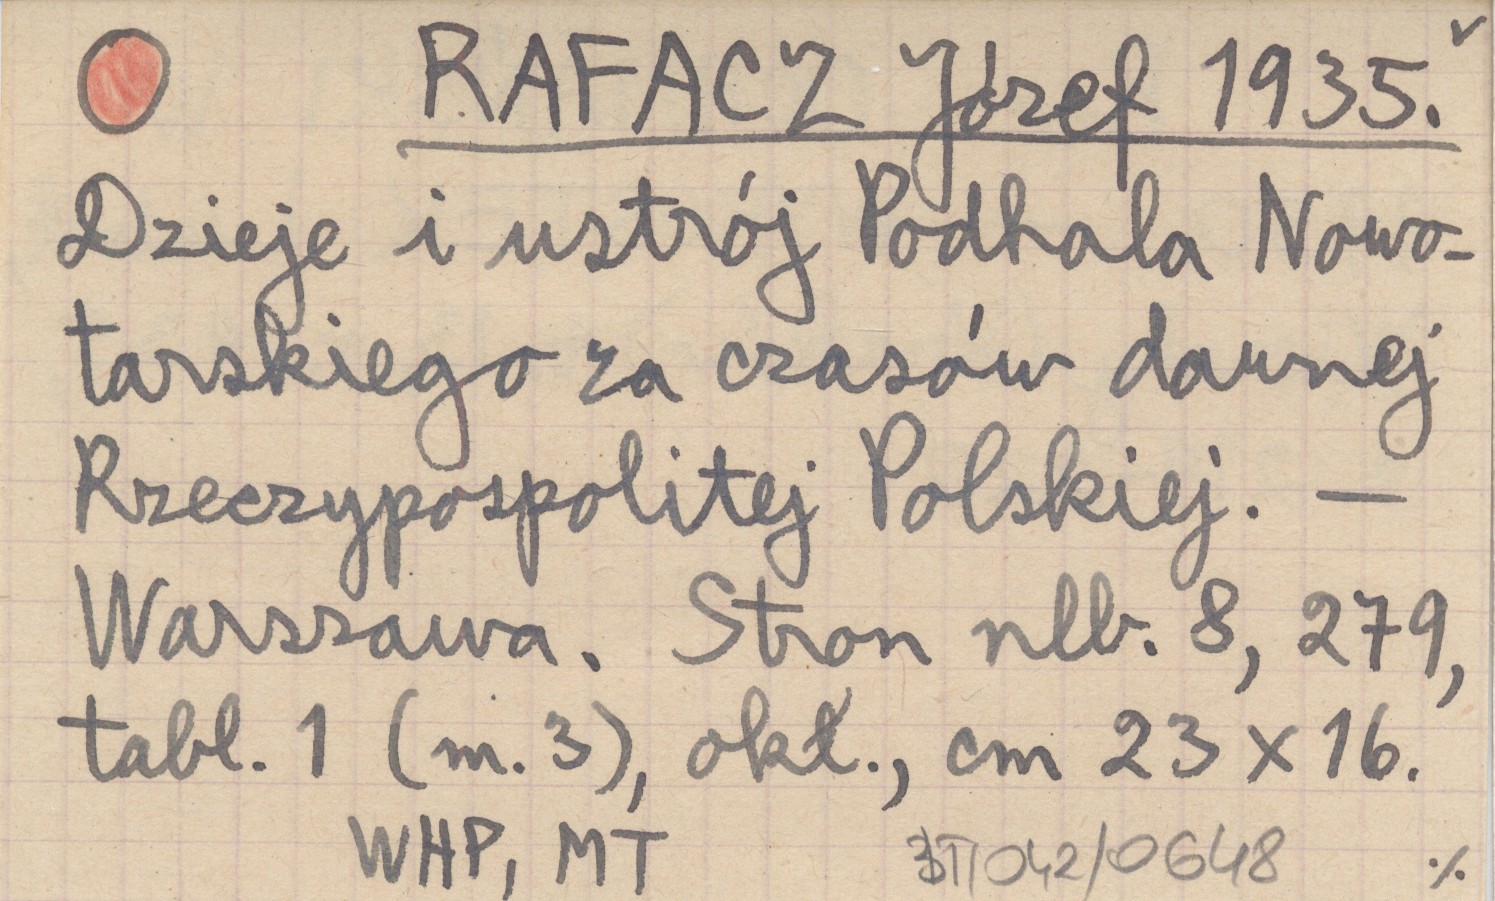 RAFACZ Józef 1935.
Dzieje i ustrój Podhala Nowo-
tarskiego za czasów dawnej
Rzeczypospolitej Polskiej. —
Warszawa. Stron nlb. 8, 279,
tabl. 1 (m. 3), okł., cm 23 x 16.
WHP, MT
042/0648
./.